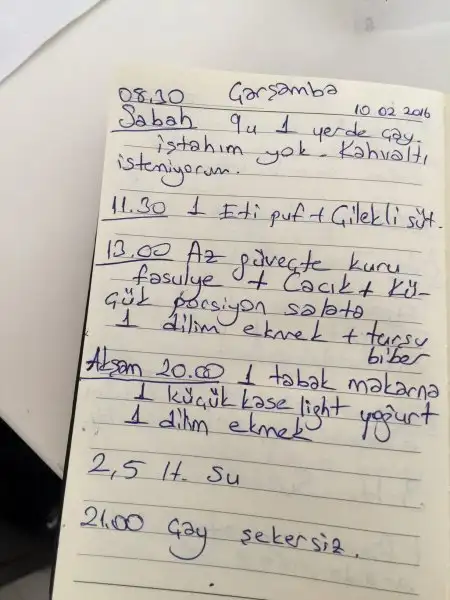 08.30 Çarşamba
10 02 2016
Sabah 9u 1 yerde çay.
iştahım yok. Kahvaltı
isteniyorum.
11.30 1 Eti puf + Çilekli süt.
13.00 Az güveçte kuru
fasulye + Cacık + Kü-
çük porsiyon salata
1 dilim ekmek + turşu
biber
Akşam 20.00 1 tabak makarna
1 küçük kase light yoğurt
1 dilim ekmek
2,5 lt. Su
21.00 çay şekersiz.